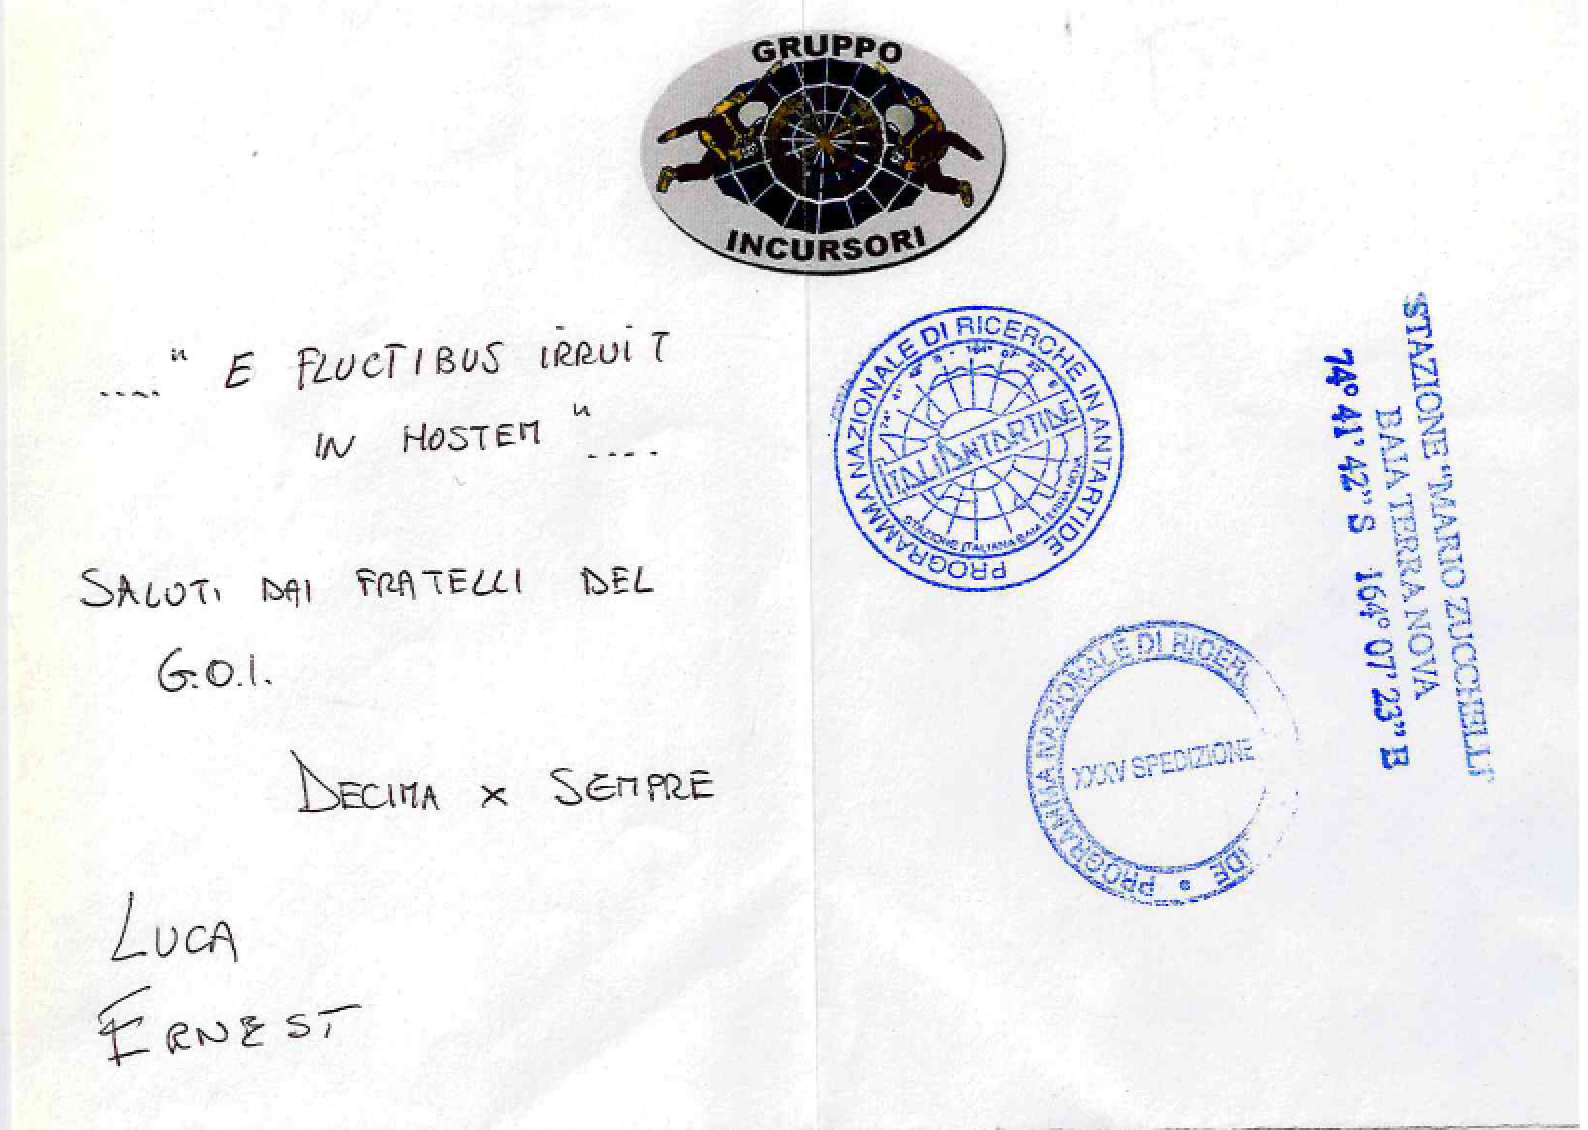 GRUPPO
INCURSORI
...." E FLUCTIBUS IRRUIT
IN HOSTEM "....
SALUTI DAI FRATELLI DEL
G.O.I.
DECIMA x SEMPRE
LUCA
ERNEST
PROGRAMMA NAZIONALE DI RICERCHE IN ANTARTIDE
ITALIANTARTIDE
STAZIONE ITALIANA BAIA TERRA NOVA
PROGRAMMA NAZIONALE DI RICER
IDE
XXXV SPEDIZIONE
STAZIONE "MARIO ZUCCHELLI"
BAIA TERRA NOVA
74° 41' 42" S 164° 07' 23" E